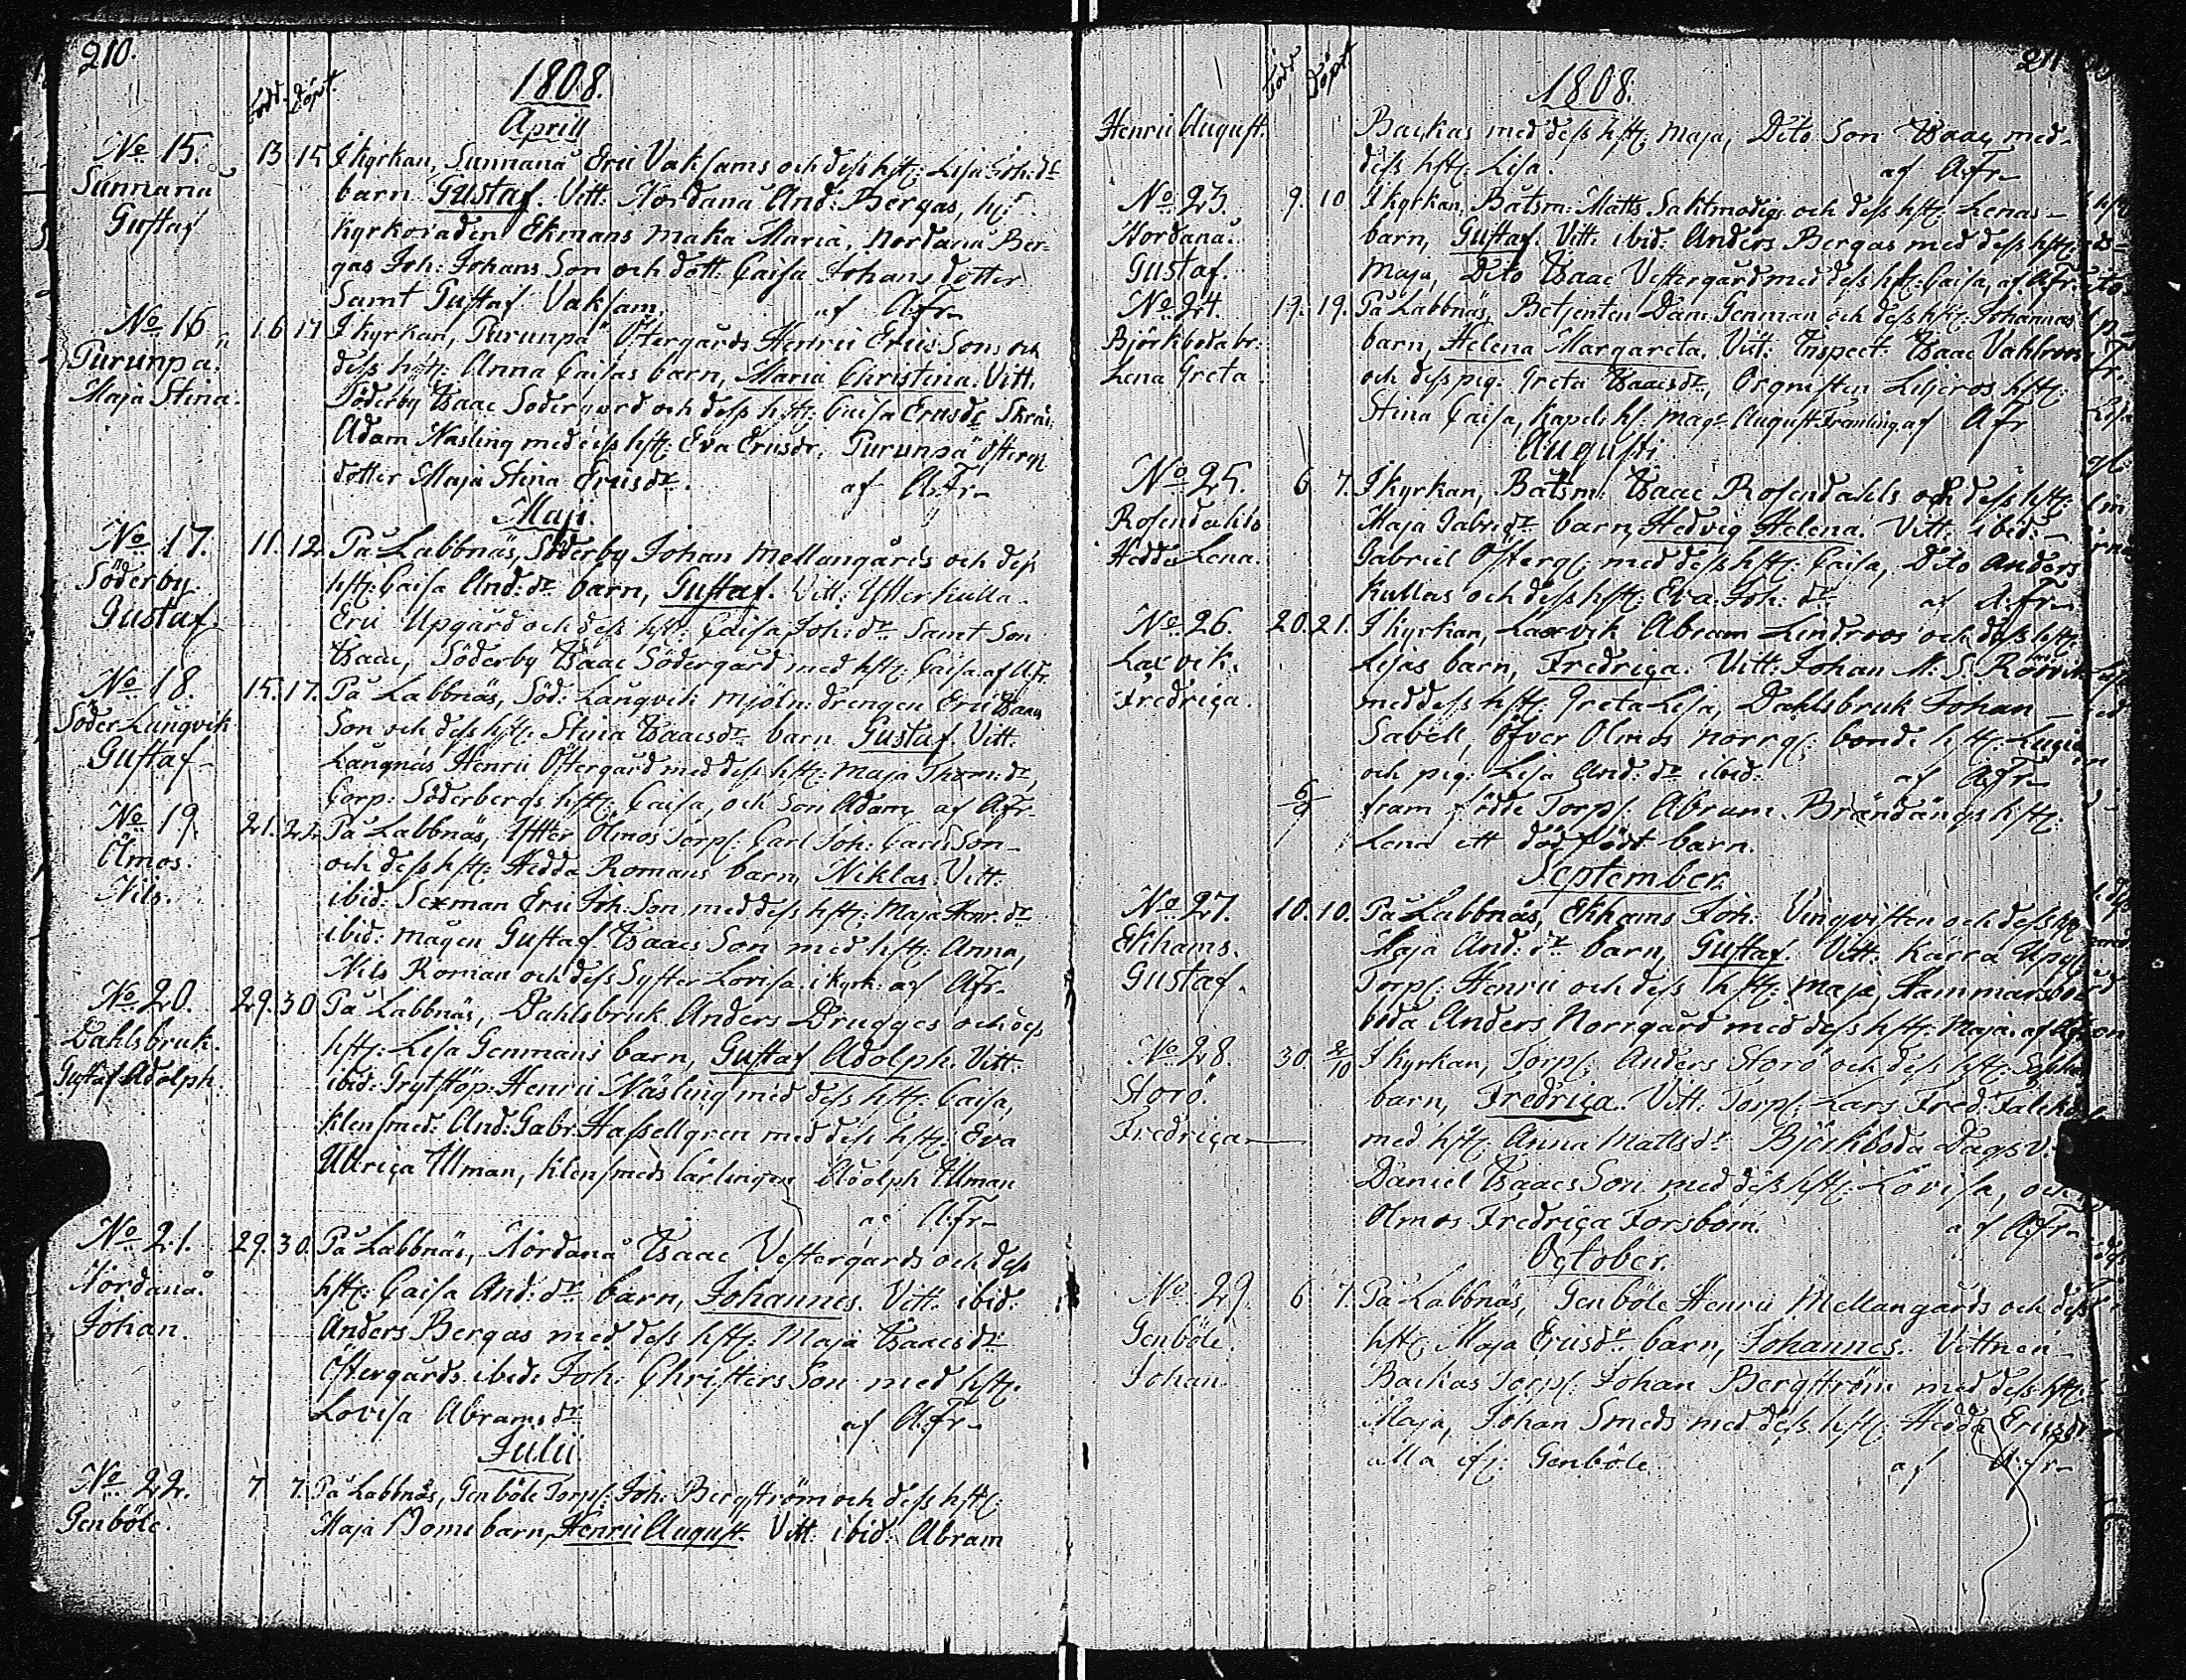 210.
Född. Döpt.
1808.
Aprill
No 15. 13 15 I kyrkan, Sunnanå Eric Vaksams och dess hst: Lisa Joh: dr
Sunnanå barn Gustaf. Vitt: Nordanå And: Bergas, hr
Gustaf Kyrkoråden Ekmans maka Maria, Nordanå Ber-
gas Joh: Johans Son och dött: Caisa Johans dotter
Samt Gustaf Vaksam. af AFr
No 16 16 17 I kyrkan, Purunpä Östergårds Henric Erics Sons och
Purunpä. dess hst: Anna Caisas barn, Maria Christina. Vitt.
Maja Stina. Söderby Isaac Södergård och dess hst: Caisa Ericsdr Skräd:
Adam Nasling med dess hst: Eva Ericsdr, Purunpä Österg:
dotter Maja Stina Ericsdr. af AFr
Maji.
No 17. 11. 12. På Labbnäs, Söderby Johan Mellangårds och dess
Söderby. hst: Caisa And: dr barn, Gustaf. Vitt: Ytterkulla
Gustaf. Eric Upgård och dess hst: Caisa Joh: dr Samt Son
Isaac, Söderby Isaac Södergård med hst: Caisa. af AFr.
No 18. 15. 17. På Labbnäs, Söd: Långvik Mjöln: drengen Eric Isaacs
Söder Långvik Son och dess hst: Stina Isaacsdr barn Gustaf Vitt:
Gustaf Långnäs Henric Östergård med dess hst: Maja Thom: dr,
Corp: Söderbergs hst: Caisa, och Son Adam af AFr
No 19. 21. 22. På Labbnäs, Ytter Ölmos Torp: Carl Joh: Carls Son
Ölmos. och dess hst: Hedda Romans barn, Niklas. Vitt:
Nils. ibid: Sexman Eric Joh: Son med dess hst: Maja Henr: dr
ibid: mågen Gustaf Isaacs Son med hst: Anna,
Nils Roman och dess Syster Lovisa. i kyrk: af AFr
No 20. 29. 30 På Labbnäs, Dahlsbruk Anders Drugges och dess
Dahlsbruk. hst: Lisa Genmans barn, Gustaf Adolph. Vitt:
Gustaf Adolph. ibid: Grytstöp: Henric Näsling med dess hst: Caisa,
Klensmed: And: Gabr: Hassellgren med dess hst: Eva
Ullrica Ullman, Klensmeds lärlingen Adolph Ullman
af AFr
No 21. 29. 30. På Labbnäs, Nordanå Isaac Vestergårds och dess
Nordanå. hst: Caisa And: dr barn, Johannes. Vitt: ibid:
Johan. Anders Bergas med dess hst: Maja Isaacsdr
Östergårds ibid: Joh: Christers Son med hst:
Lovisa Abramsdr af AFr
Julii.
No 22. 7 7. På Labbnäs, Genböle Torp: Joh: Bergström och dess hst:
Genböle. Maja barn, Henric August. Vitt: ibid: Abram
211
Född Döpt
1808.
Henric August. Backas med dess hst: Maja, Dito Son Isaac med
dess hst: Lisa. af AFr
No 23. 9. 10 I kyrkan, Båtsm: Matts Saktmodigs och dess hst: Lenas
Nordanå. barn, Gustaf. Vitt: ibid: Anders Bergas med dess hst:
Gustaf. Maja, Dito Isaac Vestergård med dess hst: Caisa, af AFr.
No 24. 19. 19. På Labbnäs, Betjenten Dan: Genman och dess hst: Johannas
Björkboda br: barn, Helena Margareta. Vitt: Inspect: Isaac Vahlroos
Lena Greta och dess pig: Greta Isaacsdr, Orgnisten Liljeros hst:
Stina Caisa, Kapel: hs: Magr August Framling af AFr
Augusti
No 25. 6 7. I kyrkan, Båtsm: Isaac Rosendahls och dess hst:
Rosendahls Maja Gabrsdr barn, Hedvig Helena. Vitt: ibid:
Hedda Lena. Gabriel Österg: med dess hst: Caisa, Dito Anders
Kullas och dess hst: Eva Joh: dr af AFr
No 26. 20. 21. I kyrkan, Laxvik Abram Lindroos och dess hst:
Laxvik. Lisas barn, Fredrica. Vitt: Johan M. S. Rörvik
Fredrica. med dess hst: Greta Lisa, Dahlsbruk Johan
Sabell, Öfver Olmos Norrg: bond: hst:
och pig: Lisa And: dr ibid: af AFr
6/9 fram födde Torp: Abram Brändängs hst:
Lena ett dödfödt barn.
September.
No 27. 10. 10. På Labbnäs, Ekhams Joh: Vingqvisten och dess hst
Ekhams. Maja And: dr barn, Gustaf. Vitt: Kärra Upg:
Gustaf. Torp: Henric och dess hst: Maja, Hammars
boda Anders Norrgård med dess hst: Maja. af AFr
No 28. 30. 2/10 I kyrkan, Torp: Anders Storö och dess hst:
Storö. barn, Fredrica. Vitt: Torp: Lars Fred:
Fredrica. med hst: Anna Mattsdr Björkboda Dagsv:
Daniel Isaacs Son med dess hst: Lovisa, och
Olmos Fredrica Forsbom. af AFr
October.
No 29. 6 7. På Labbnäs, Genböle Henric Mellangårds och dess
Genböle. hst: Maja Ericsdr barn, Johannes. Vittnen
Johan. Backas Torp: Johan Bergström med dess hst:
Maja, Johan Smeds med dess hst: Hedda Ericsdr
alla if: Genböle. af AFr